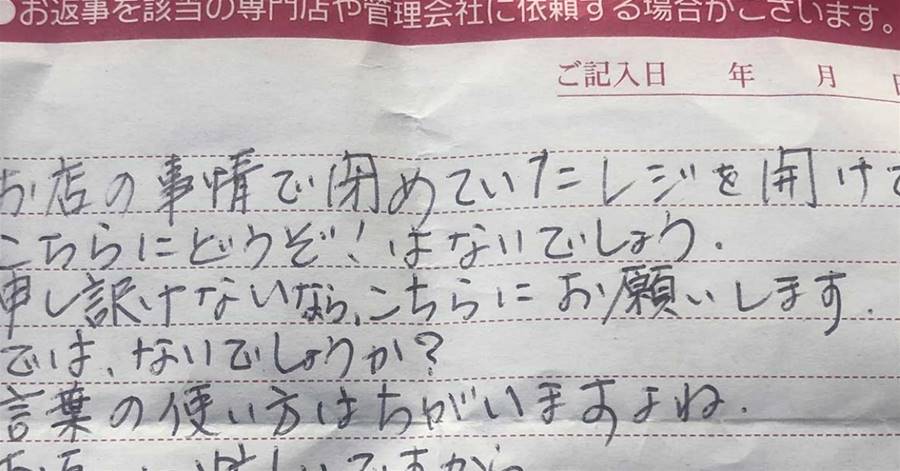 ●お返事を該当の専門店や管理会社に依頼する場合がございます。
ご記入日　　年　　月　　日
お店の事情で閉めていたレジを開けて
こちらにどうぞ！はないでしょう.
申し訳けないなら、こちらにお願いします.
では、ないでしょうか?
言葉の使い方はちがいますよね.
忙しいですから